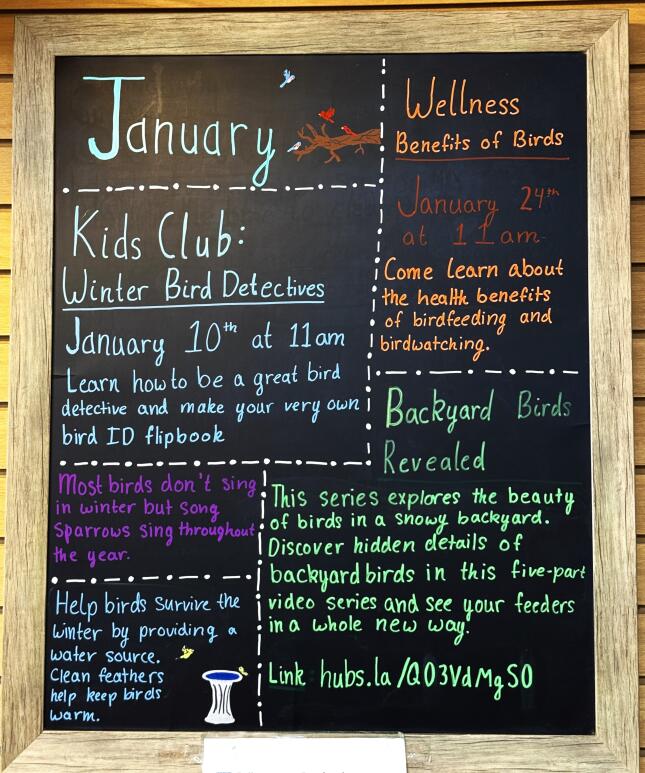 January
Kids Club:
Winter Bird Detectives
January 10th at 11am
Learn how to be a great bird
detective and make your very own
bird ID flipbook
Wellness
Benefits of Birds
January 24th
at 11am
Come learn about
the health benefits
of birdfeeding and
birdwatching.
Backyard Birds
Revealed
This series explores the beauty
of birds in a snowy backyard.
Discover hidden details of
backyard birds in this five-part
video series and see your feeders
in a whole new way.
Link hubs.la/Q03VdMgS0
Most birds don't sing
in winter but song
sparrows sing throughout
the year.
Help birds survive the
winter by providing a
water source.
Clean feathers
help keep birds
warm.